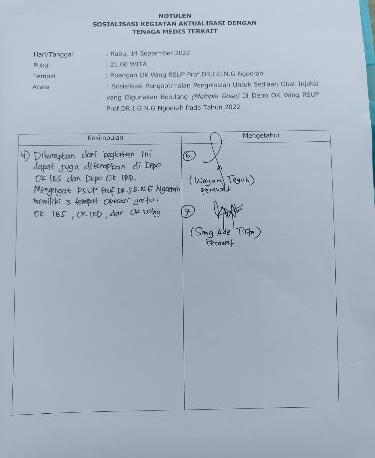 NOTULEN
SOSIALISASI KEGIATAN AKTUALISASI DENGAN
TENAGA MEDIS TERKAIT
Hari/Tanggal : Rabu, 14 September 2022
Pukul : 21.00 WITA
Tempat : Ruangan OK Wing RSUP Prof.DR.I.G.N.G Ngoerah
Acara : Sosialisasi Pengoptimalan Pengelolaan Untuk Sediaan Obat Injeksi
yang Digunakan Berulang (Multiple Dose) Di Depo OK Wing RSUP
Prof.DR.I.G.N.G Ngoerah Pada Tahun 2022
Kesimpulan
Mengetahui
4) Diharapkan dari kegiatan ini
dapat juga diterapkan di Depo
OK IBS dan Depo OK IRD.
Mengingat RSUP Prof.DR.I.G.N.G Ngoerah
memiliki 3 tempat operasi yaitu:
OK IBS, OK IRD, dan OK Wing
6)
(Wayan Teguh)
Perawat
7)
(Sang Ade)
Perawat